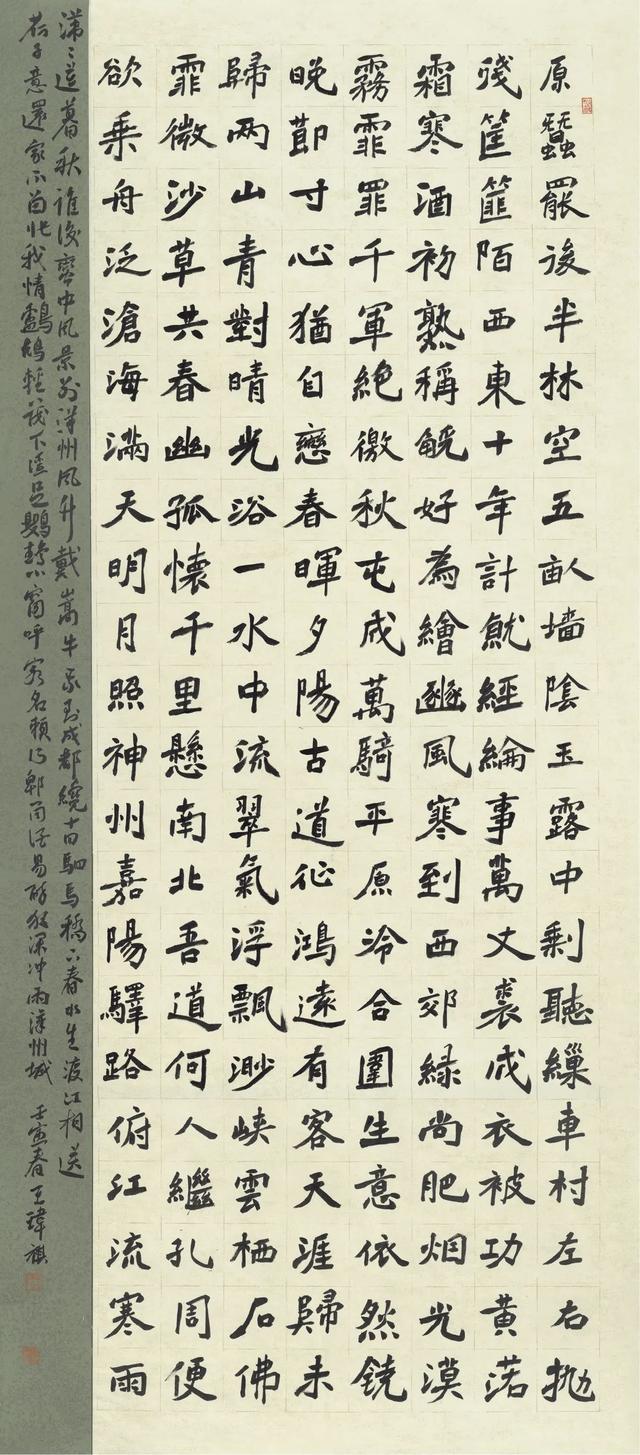 原蠶罷後半林空五畝墻陰玉露中剩聽繅車村左右拋
殘筐篚陌西東十年計就經綸事萬丈裘成衣被功黃落
霜寒酒初熟稱觥好為繪豳風寒到西郊綠尚肥烟光漠
霧霏罪千軍絕徼秋屯成萬騎平原冷合圍生意依然饒
晚節寸心猶自戀春暉夕陽古道征鴻遠有客天涯歸未
歸兩山青對晴光浴一水中流翠氣浮飄渺峽雲栖石佛
霏微沙草共春幽孤懷千里懸南北吾道何人繼孔周便
欲乘舟泛滄海滿天明月照神州嘉陽驛路俯江流寒雨
道暮秋誰復中風景州風升戴嵩牛到成都繞十日駟馬橋下春水生渡江相送
荷子意還家不留非我情鸕鶿輕筏下溪足鸚鵡小窗呼客名賴得郫筒酒易醉夜深冲雨漢州城 壬寅春王瑋祺